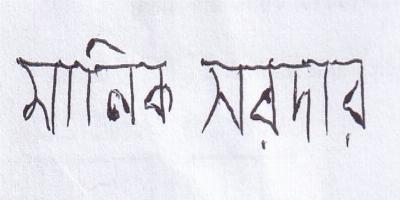 মানিক সরদার